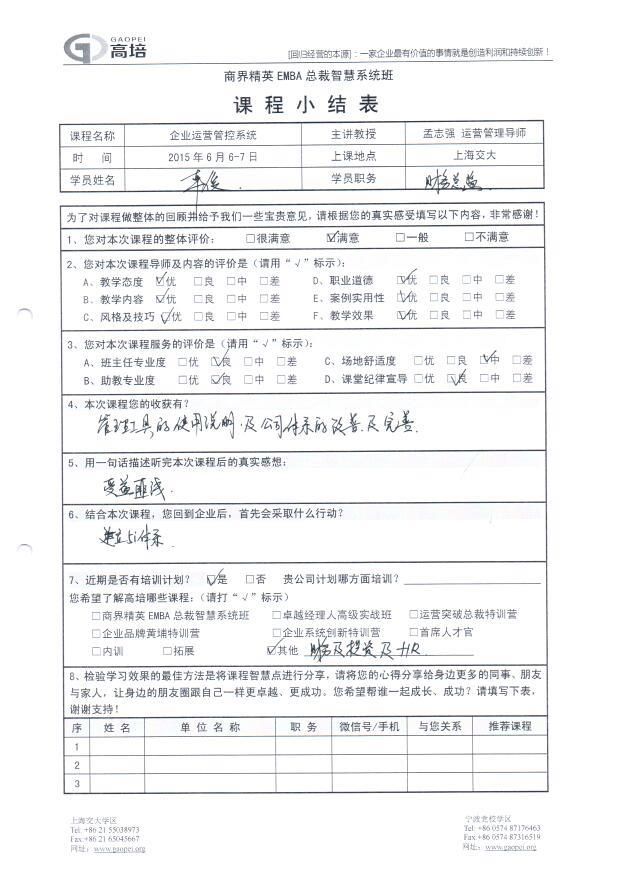 GAOPEI
高培
[回归经营的本源]:一家企业最有价值的事情就是创造利润和持续创新!
商界精英EMBA总裁智慧系统班
课程小结表
课程名称 企业运营管控系统 主讲教授 孟志强 运营管理导师
时 间 2015年6月6-7日 上课地点 上海交大
学员姓名 学员职务 财务总监
为了对课程做整体的回顾并给予我们一些宝贵意见,请根据您的真实感受填写以下内容,非常感谢!
1、您对本次课程的整体评价: □很满意 ☑满意 □一般 □不满意
2、您对本次课程导师及内容的评价是(请用“√”标示):
A、教学态度 ☑优 □良 □中 □差 D、职业道德 ☑优 □良 □中 □差
B、教学内容 ☑优 □良 □中 □差 E、案例实用性 ☑优 □良 □中 □差
C、风格及技巧 ☑优 □良 □中 □差 F、教学效果 ☑优 □良 □中 □差
3、您对本次课程服务的评价是(请用“√”标示):
A、班主任专业度 □优 ☑良 □中 □差 C、场地舒适度 □优 □良 ☑中 □差
B、助教专业度 □优 ☑良 □中 □差 D、课堂纪律宣导 □优 ☑良 □中 □差
4、本次课程您的收获有?
管理工具的使用说明及公司体系的改善及完善.
5、用一句话描述听完本次课程后的真实感想:
受益匪浅.
6、结合本次课程,您回到企业后,首先会采取什么行动?
建立5i体系
7、近期是否有培训计划? ☑是 □否 贵公司计划哪方面培训?
您希望了解高培哪些课程:(请打“√”标示)
□商界精英EMBA总裁智慧系统班 □卓越经理人高级实战班 □运营突破总裁特训营
□企业品牌黄埔特训营 □企业系统创新特训营 □首席人才官
□内训 □拓展 ☑其他 财务及投资及HR
8、检验学习效果的最佳方法是将课程智慧点进行分享,请将您的心得分享给身边更多的同事、朋友
与家人,让身边的朋友圈跟自己一样更卓越、更成功。您希望帮谁一起成长、成功?请填写下表,
谢谢支持!
序 姓名 单位名称 职务 微信号/手机 与您关系 推荐课程
1
2
3
上海交大学区 宁波党校学区
Tel: +86 21 55038973 Tel: +86 0574 87176463
Fax:+86 21 65045667 Fax:+86 0574 87316519
网址: www.gaopei.org 网址: www.gaopei.org